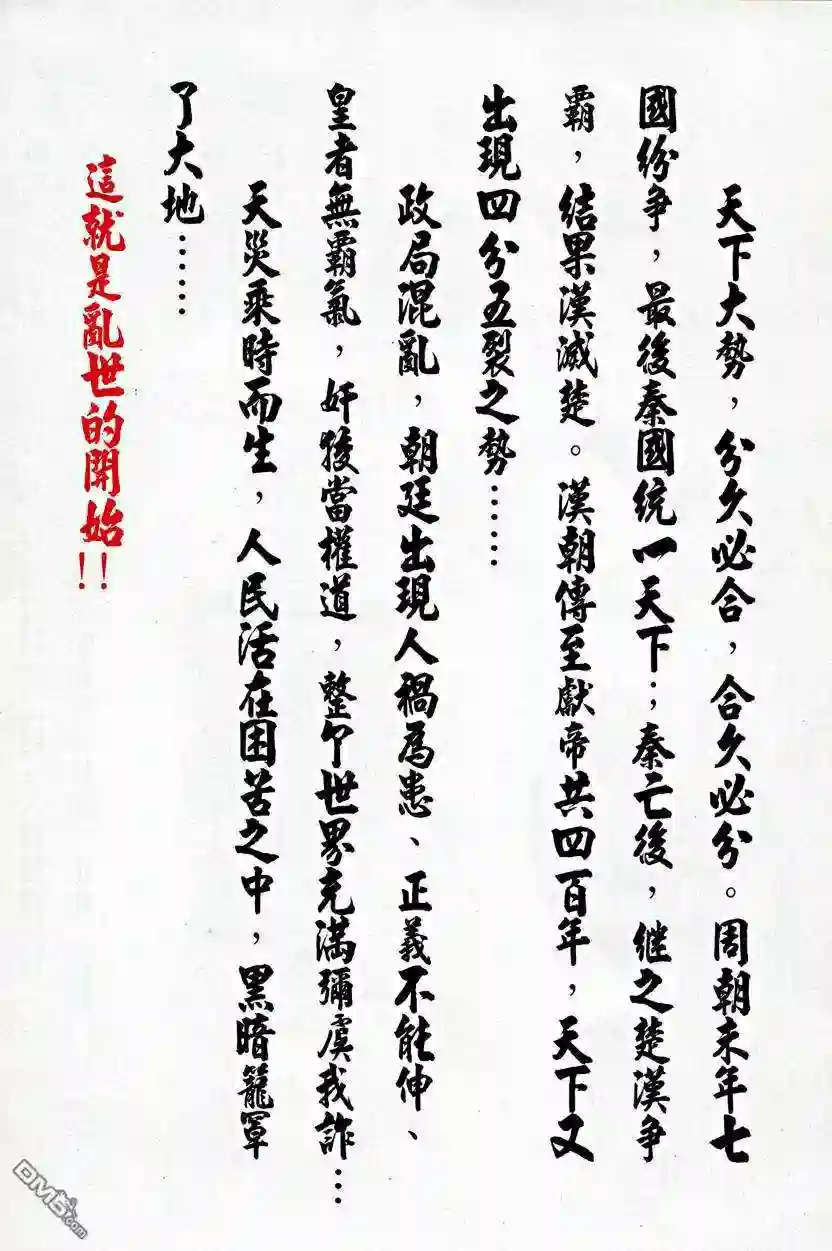 天下大勢，分久必合，合久必分。周朝末年七
國紛爭，最後秦國統一天下；秦亡後，繼之楚漢爭
霸，結果漢滅楚。漢朝傳至獻帝共四百年，天下又
出現四分五裂之勢……
政局混亂，朝廷出現人禍為患、正義不能伸、
皇者無霸氣，奸狡當權道，整個世界充滿彌虞我詐…
天災乘時而生，人民活在困苦之中，黑暗籠罩
了大地……
這就是亂世的開始!!
DM5.com